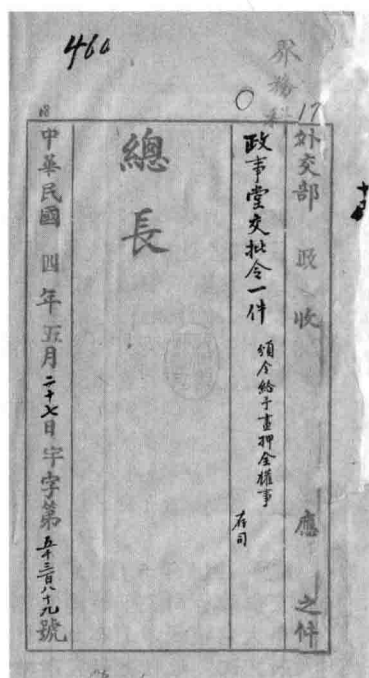 460
界務科
17
外交部 政 收 應 之件
政事堂交批令一件 頒令給予畫押全權事
存司
總長
中華民國四年五月二十七日宇字第五千三百八十九號